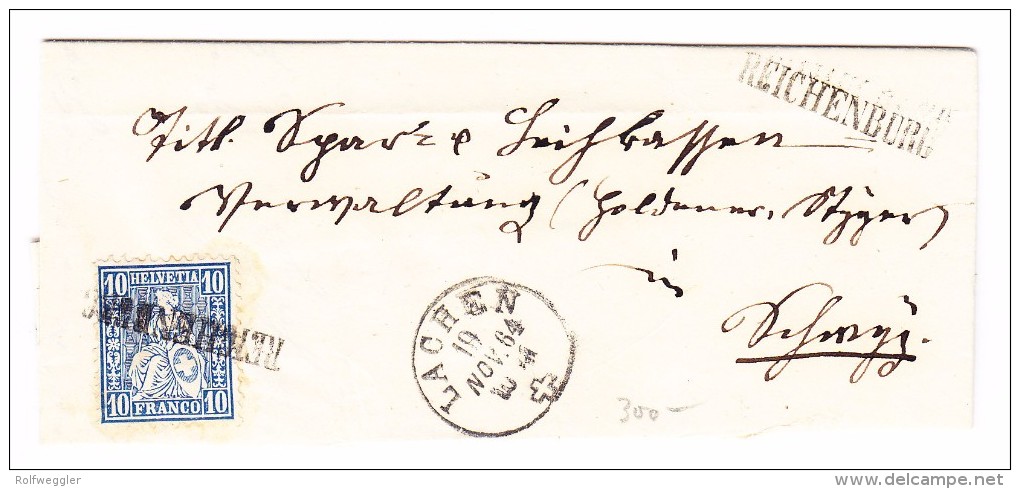 REICHENBURG
Titl. Spar- & Leihkassen
Verwaltung (Holdener, Styger)
in
Schwyz.
10 HELVETIA 10
REICHENBURG
10 FRANCO 10
LACHEN
19
NOV. 64
300-
Rolfweggler
www.delcampe.net